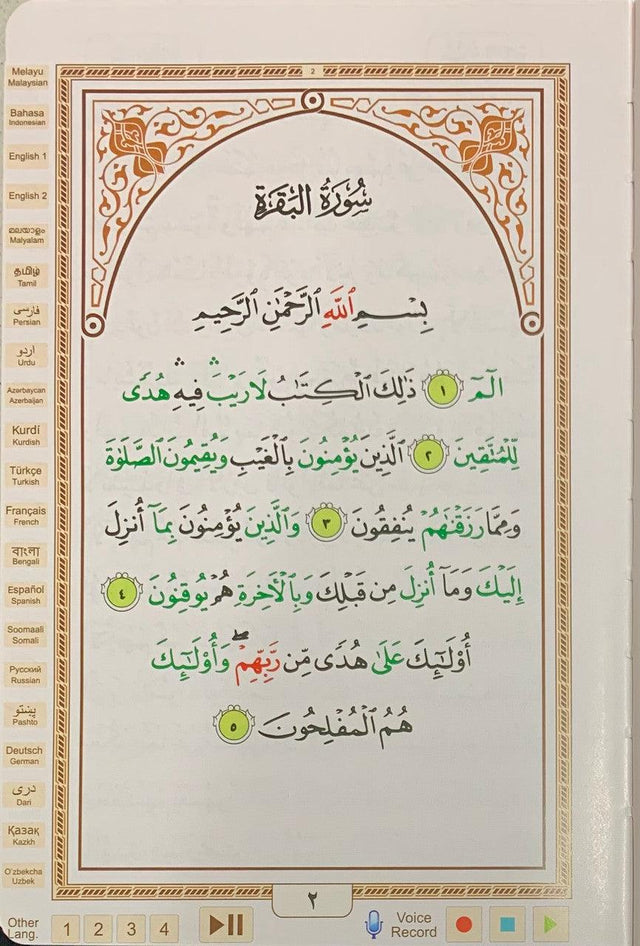 2
Melayu
Malaysian
Bahasa
Indonesian
English 1
English 2
മലയാളം
Malyalam
தமிழ்
Tamil
فارسی
Persian
اردو
Urdu
Azərbaycan
Azerbaijan
Kurdí
Kurdish
Türkçe
Turkish
Français
French
বাংলা
Bengali
Español
Spanish
Soomaali
Somali
Русский
Russian
پښتو
Pashto
Deutsch
German
دری
Dari
Қазақ
Kazkh
O'zbekcha
Uzbek
سُورَةُ الْبَقَرَةِ
بِسْمِ ٱللَّهِ ٱلرَّحْمَٰنِ ٱلرَّحِيمِ
الٓمٓ ١ ذَٰلِكَ ٱلْكِتَٰبُ لَا رَيْبَ ۛ فِيهِ ۛ هُدًى
لِّلْمُتَّقِينَ ٢ ٱلَّذِينَ يُؤْمِنُونَ بِٱلْغَيْبِ وَيُقِيمُونَ ٱلصَّلَوٰةَ
وَمِمَّا رَزَقْنَٰهُمْ يُنفِقُونَ ٣ وَٱلَّذِينَ يُؤْمِنُونَ بِمَآ أُنزِلَ
إِلَيْكَ وَمَآ أُنزِلَ مِن قَبْلِكَ وَبِٱلْءَاخِرَةِ هُمْ يُوقِنُونَ ٤
أُو۟لَٰٓئِكَ عَلَىٰ هُدًى مِّن رَّبِّهِمْ ۖ وَأُو۟لَٰٓئِكَ
هُمُ ٱلْمُفْلِحُونَ ٥
٢
Other
Lang.
1 2 3 4
Voice
Record